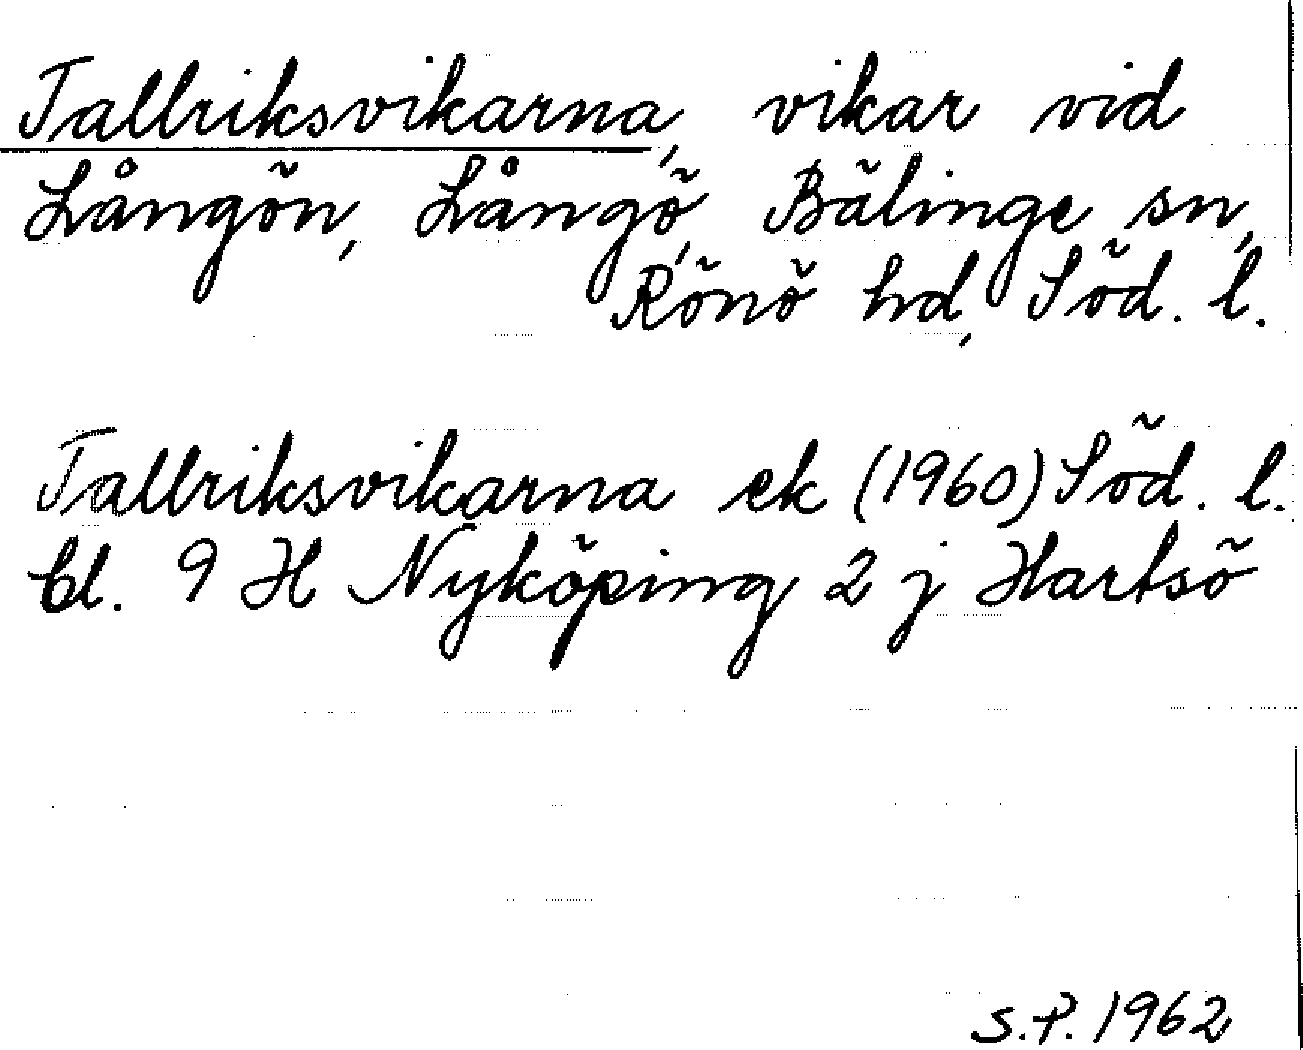 Tallriksvikarna, vikar vid
Långön, Långö, Bälinge sn,
Rönö hd, Söd. l.
Tallriksvikarna ek (1960) Söd. l.
bl. 9 H Nyköping 2 j Hartsö
S.P. 1962